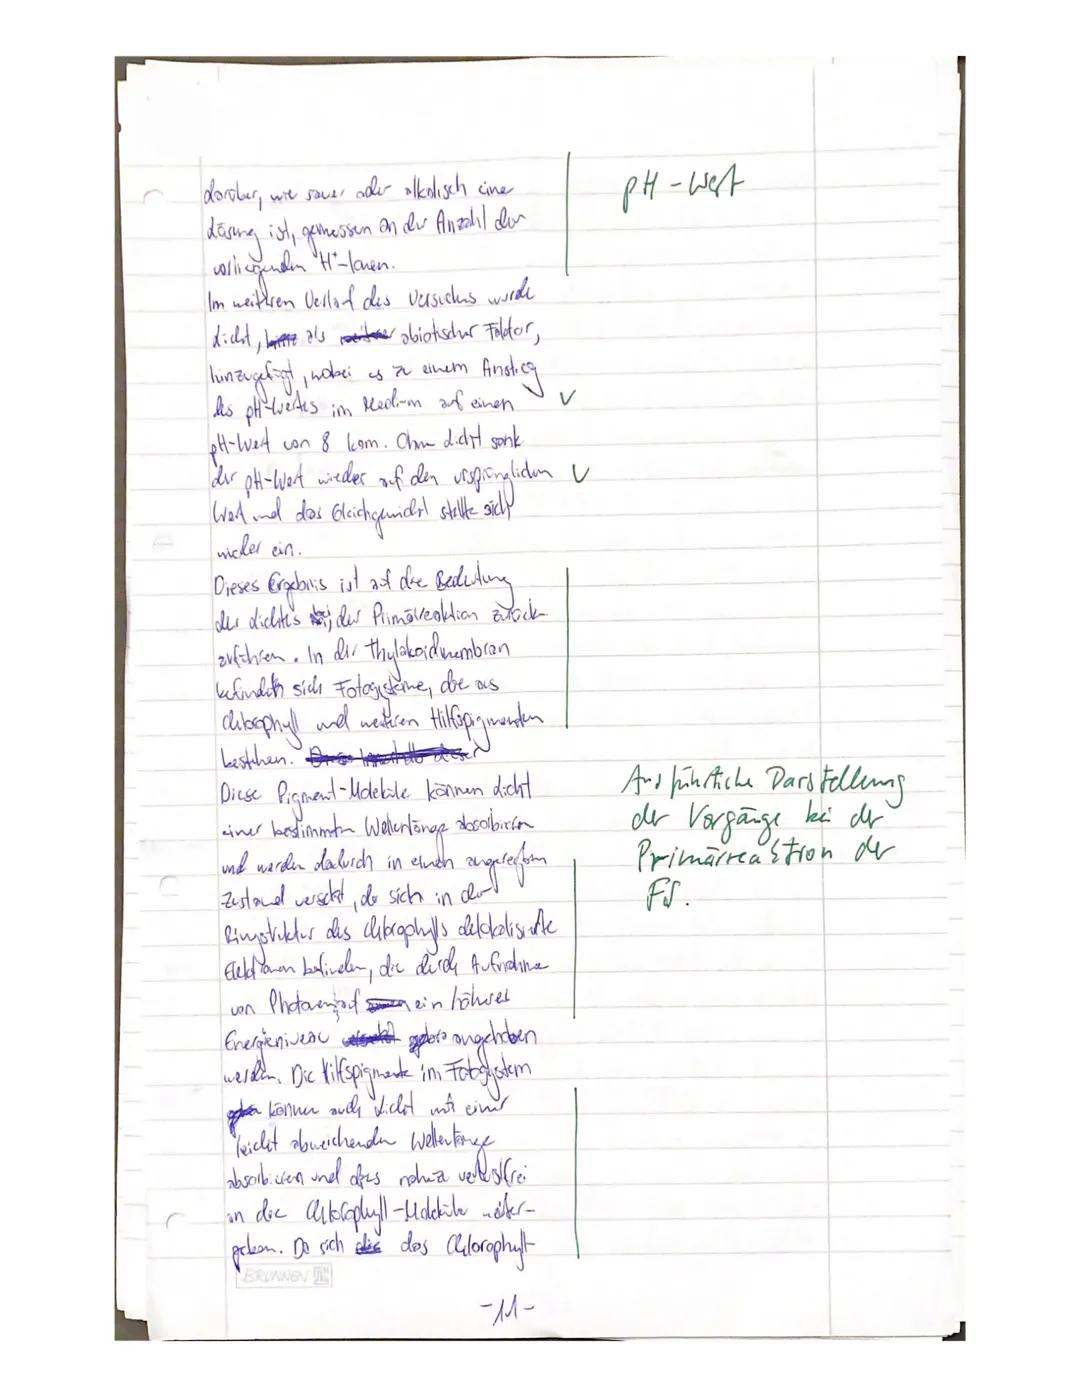 darüber, wie sauer oder alkalisch eine
pH-Wert
Lösung ist, gemessen an der Anzahl der
vorliegenden H⁺-Ionen.
Im weiteren Verlauf des Versuchs wurde
Licht, als abiotischer Faktor,
hinzugefügt, wobei es zu einem Anstieg
des pH-Wertes im Medium auf einen ✓
pH-Wert von 8 kam. Ohne Licht sank
der pH-Wert wieder auf den ursprünglichen ✓
Wert und das Gleichgewicht stellte sich
wieder ein.
Dieses Ergebnis ist auf die Bedeutung
des Lichtes bei der Primärreaktion zurück-
zuführen. In der Thylakoidmembran
befinden sich Fotosysteme, die aus
Chlorophyll und weiteren Hilfspigmenten
bestehen.
Diese Pigment-Moleküle können Licht
Ausführliche Darstellung
einer bestimmten Wellenlänge absorbieren
der Vorgänge bei der
und werden dadurch in einen angeregten
Primärreaktion der
Zustand versetzt, da sich in der
FS.
Ringstruktur des Chlorophylls delokalisierte
Elektronen befinden, die durch Aufnahme
von Photonen auf ein höheres
Energieniveau angehoben
werden. Die Hilfspigmente im Fotosystem
können auch Licht mit einer
leicht abweichenden Wellenlänge
absorbieren und dies nahezu verlustfrei
an die Chlorophyll-Moleküle weiter-
geben. Da sich das Chlorophyll-
BRUNNEN
-11-